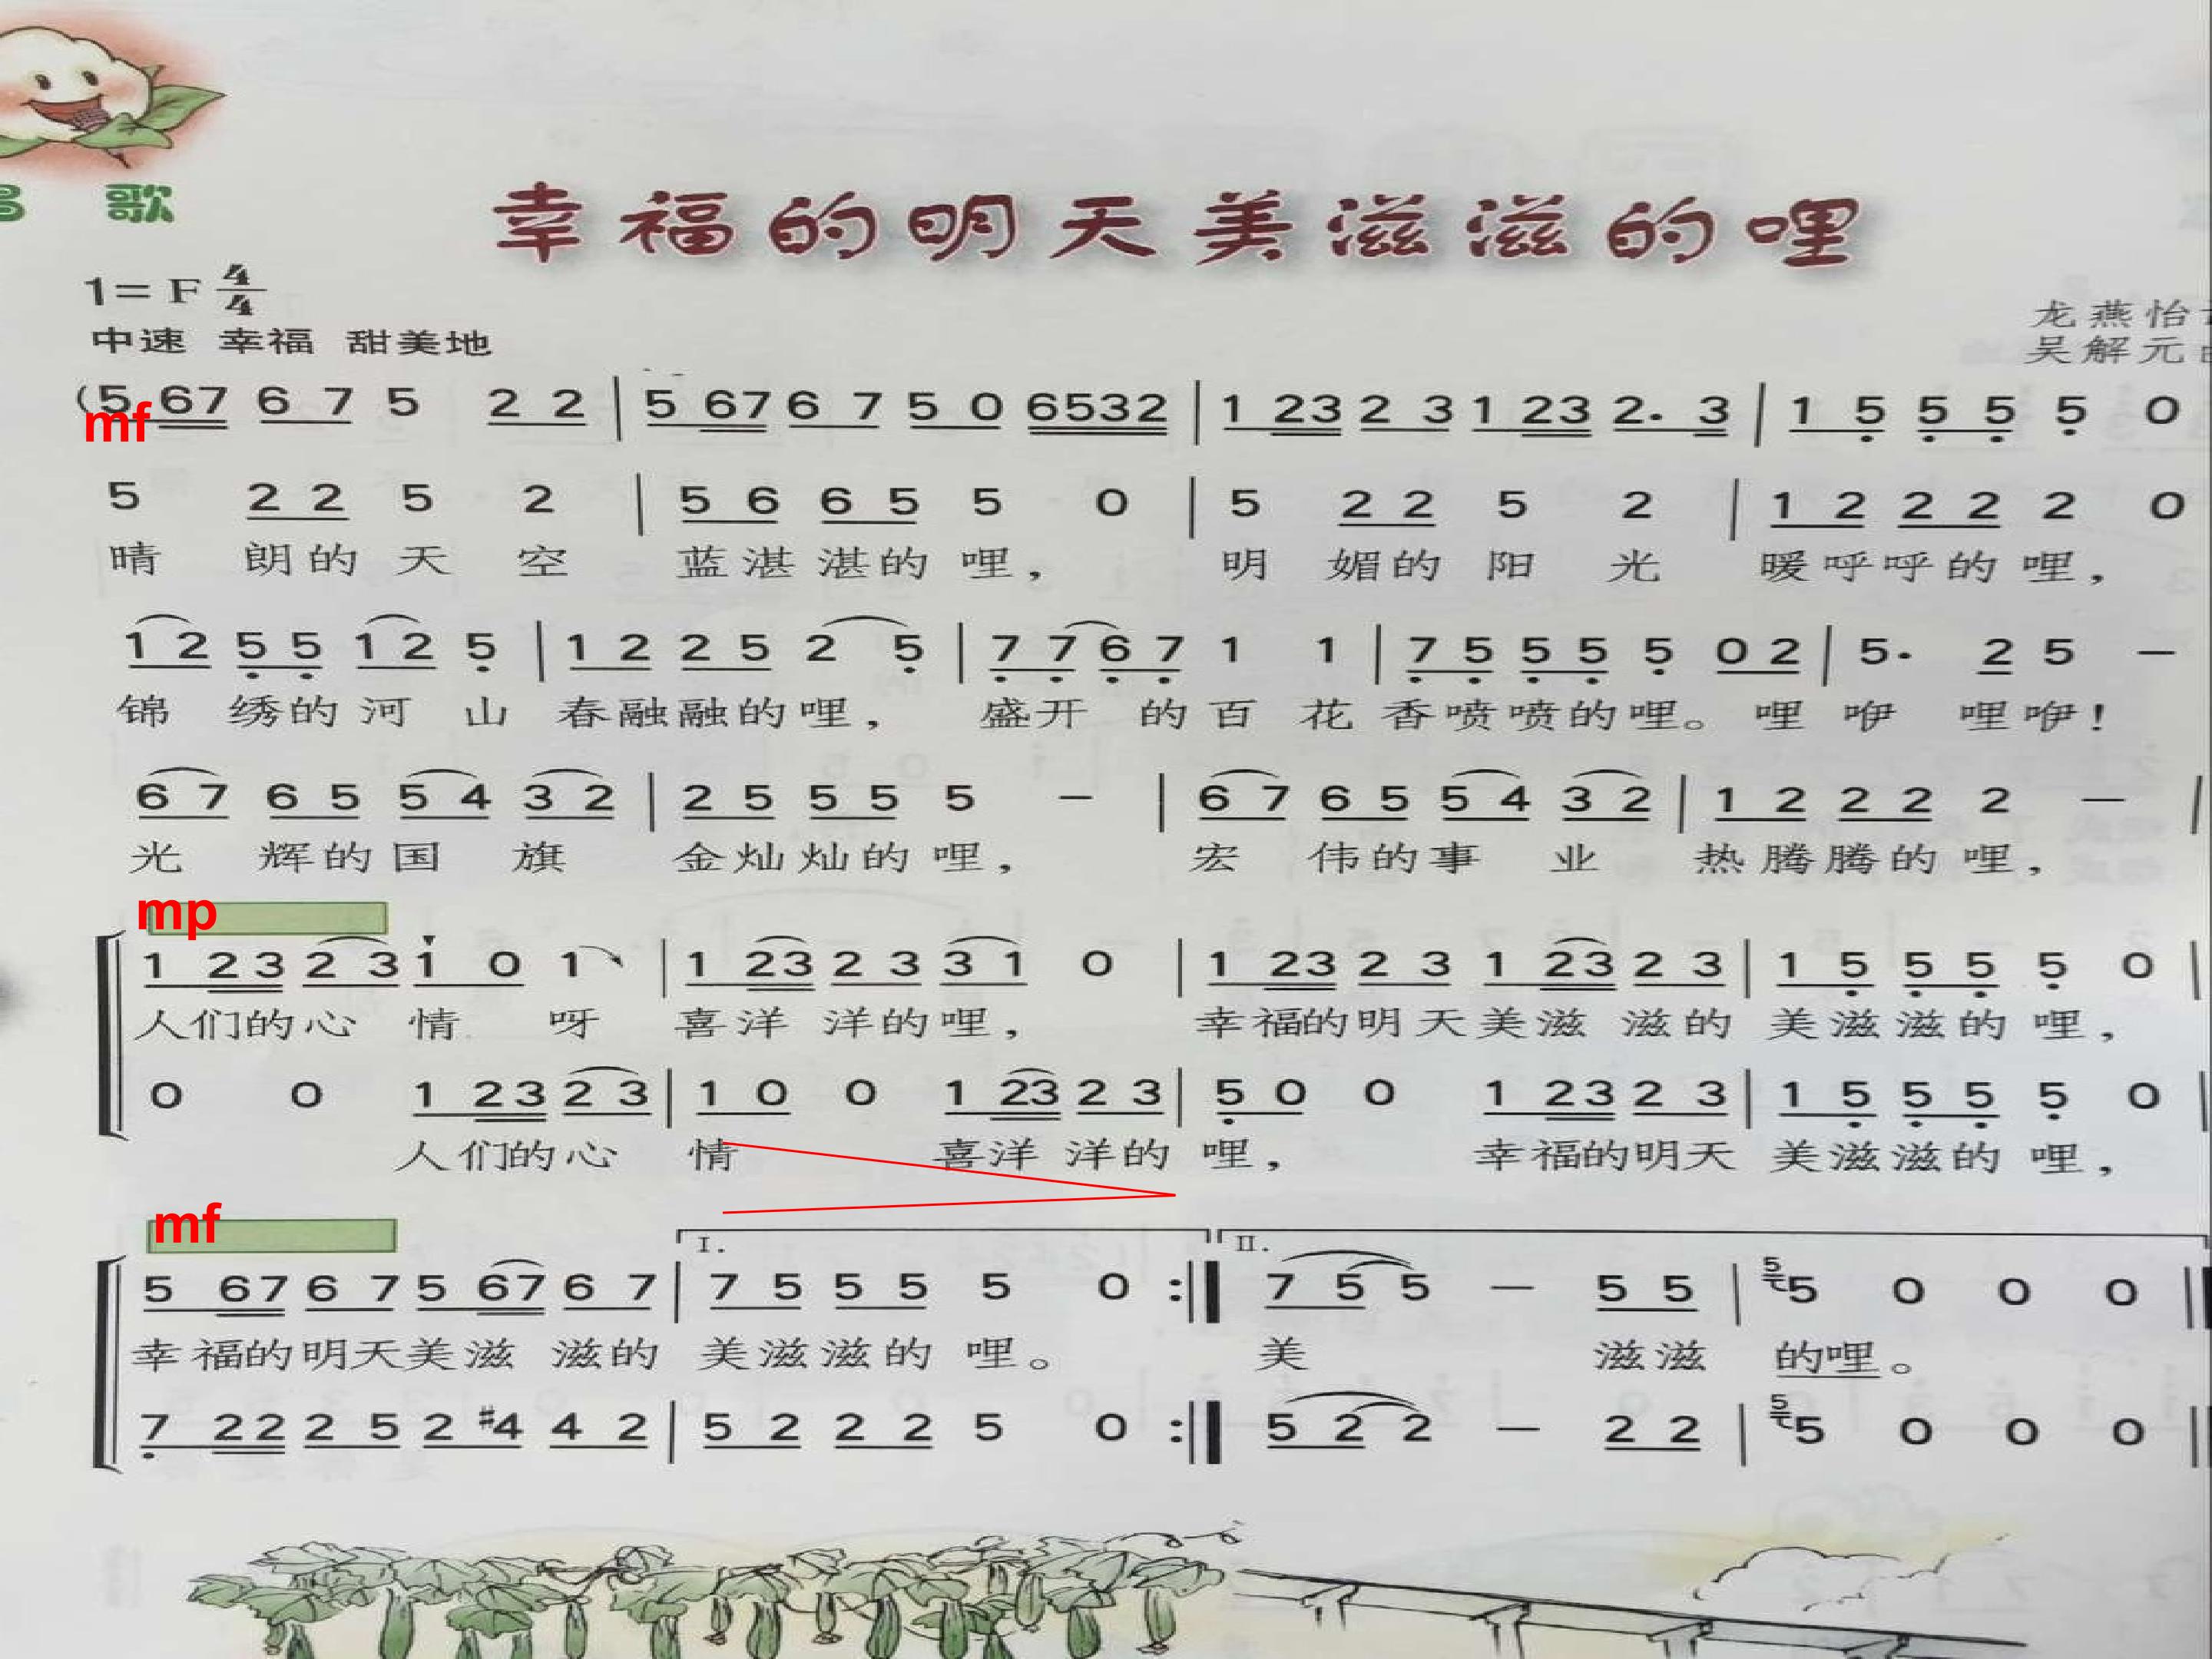 歌
幸福的明天美滋滋的哩
1= F 4/4
中速 幸福 甜美地
龙燕怡
吴解元
(5 67 6 7 5 2 2 | 5 67 6 7 5 0 6532 | 1 23 2 3 1 23 2. 3 | 1 5 5 5 5 0
mf
5 2 2 5 2 | 5 6 6 5 5 0 | 5 2 2 5 2 | 1 2 2 2 2 0
晴 朗的 天 空 蓝湛湛的哩, 明 媚的 阳 光 暖呼呼的哩,
1 2 5 5 1 2 5 | 1 2 2 5 2 5 | 7 7 6 7 1 1 | 7 5 5 5 5 0 2 | 5. 2 5 —
锦 绣的河 山 春融融的哩, 盛开 的百 花 香喷喷的哩。哩 咿 哩咿!
6 7 6 5 5 4 3 2 | 2 5 5 5 5 — | 6 7 6 5 5 4 3 2 | 1 2 2 2 2 — |
光 辉的国 旗 金灿灿的哩, 宏 伟的事 业 热腾腾的哩,
mp
1 23 2 3 1 0 1 | 1 23 2 3 3 1 0 | 1 23 2 3 1 23 2 3 | 1 5 5 5 5 0 |
人们的心 情 呀 喜洋 洋的哩, 幸福的明天美滋 滋的 美滋滋的 哩,
0 0 1 23 2 3 | 1 0 0 1 23 2 3 | 5 0 0 1 23 2 3 | 1 5 5 5 5 0 |
人们的心 情 喜洋 洋的 哩, 幸福的明天 美滋滋的 哩,
mf
I. II.
5 67 6 7 5 67 6 7 | 7 5 5 5 5 0 :‖ 7 5 5 — 5 5 | 5 5 0 0 0 ‖
幸福的明天美滋 滋的 美滋滋的 哩。 美 滋滋 的哩。
7 22 2 5 2 #4 4 2 | 5 2 2 2 5 0 :‖ 5 2 2 — 2 2 | 5 5 0 0 0 ‖